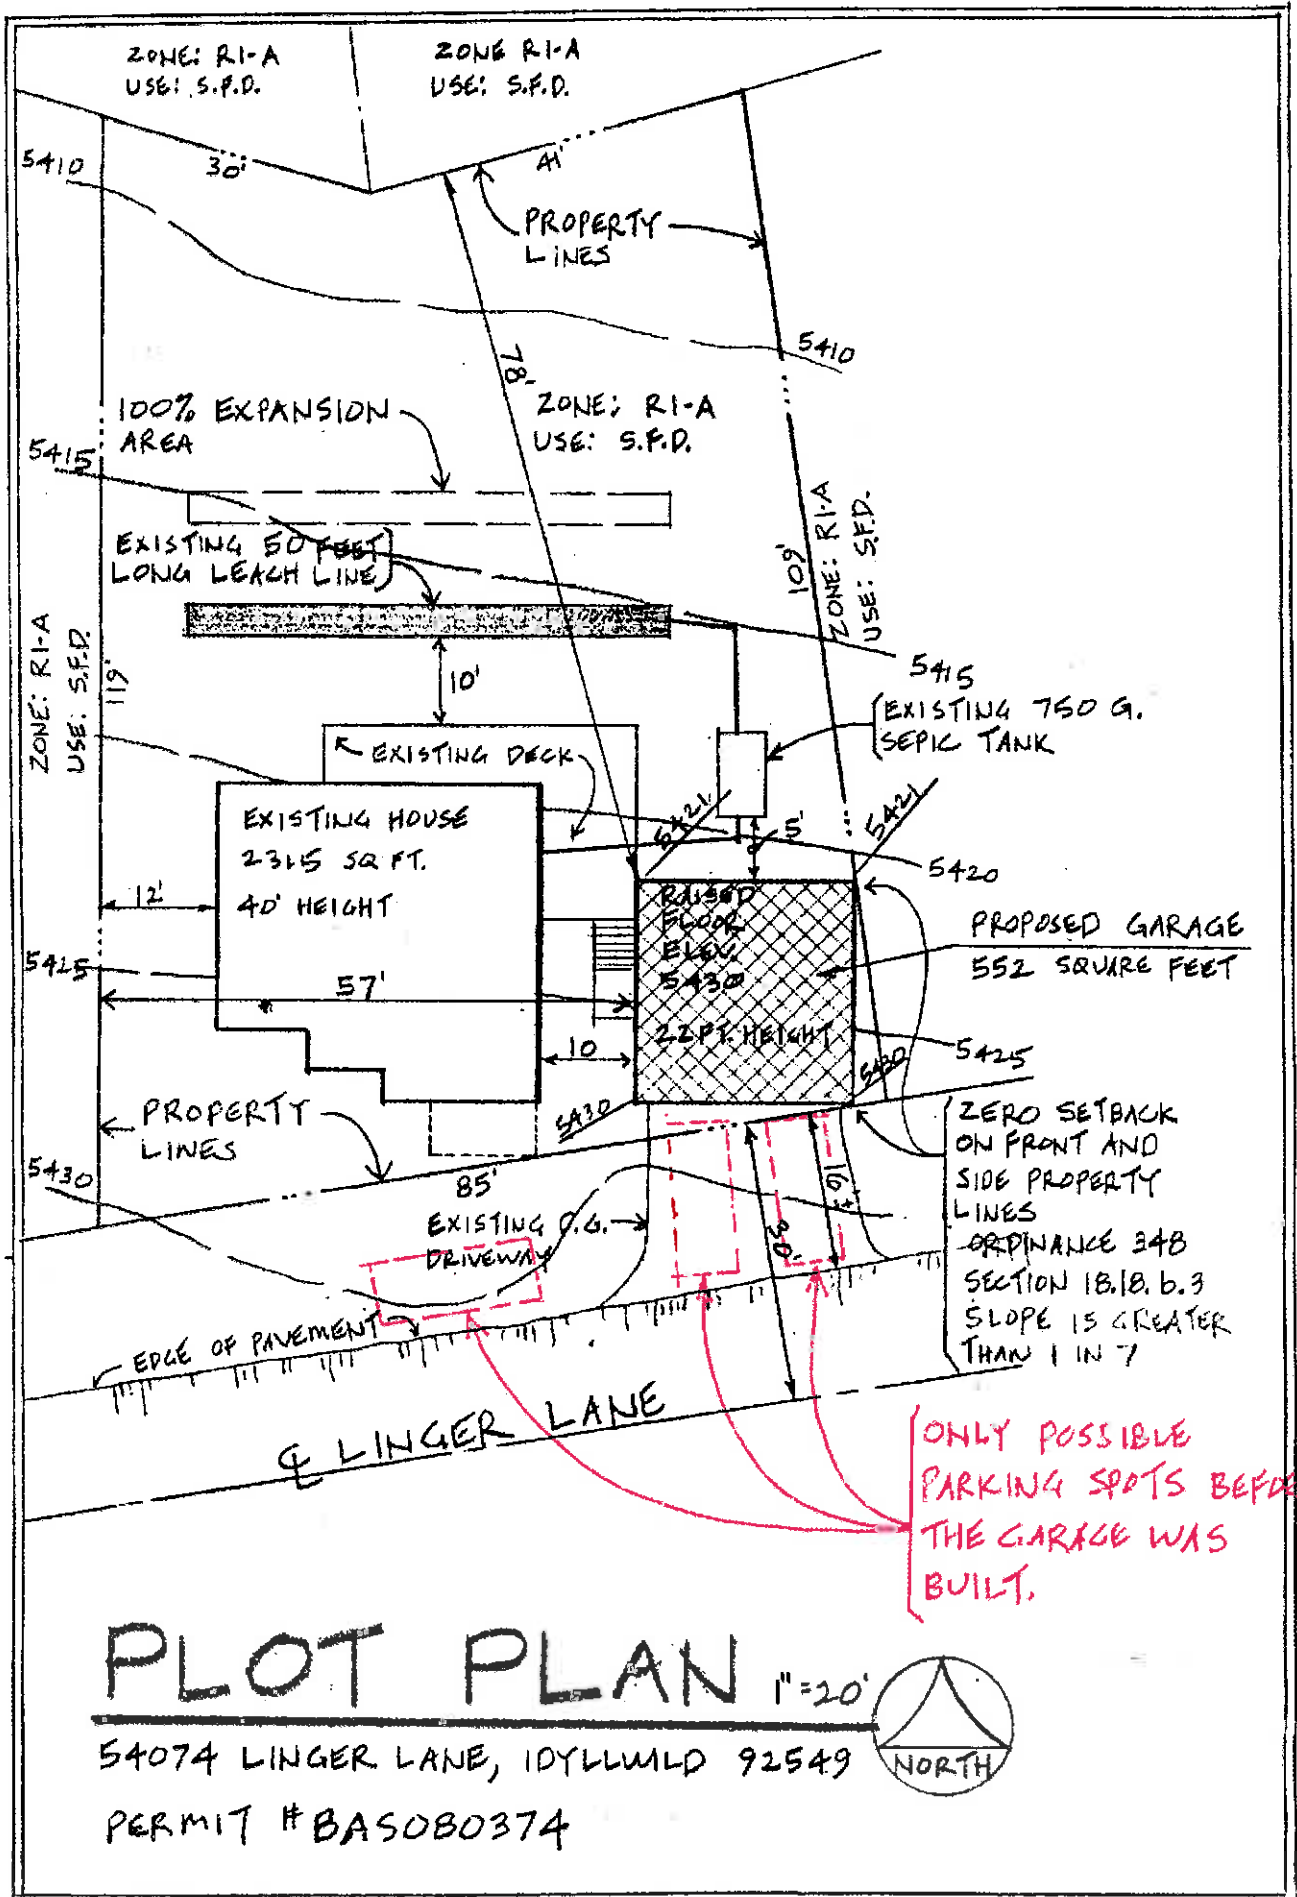 ZONE: R1-A
USE: S.F.D.
ZONE R1-A
USE: S.F.D.
30'
41'
5410
PROPERTY
LINES
5410
78'
100% EXPANSION
AREA
ZONE: R1-A
USE: S.F.D.
5415
EXISTING 50 FEET
LONG LEACH LINE
109'
ZONE: R1-A
USE: S.F.D.
ZONE: R1-A
USE: S.F.D.
119'
10'
5415
EXISTING 750 G.
SEPIC TANK
EXISTING DECK
5421
5'
5421
EXISTING HOUSE
2315 SQ FT.
40' HEIGHT
12'
5420
RAISED
FLOOR
ELEV.
5430
22 FT. HEIGHT
PROPOSED GARAGE
552 SQUARE FEET
5425
57'
10
5425
5430
5430
PROPERTY
LINES
ZERO SETBACK
ON FRONT AND
SIDE PROPERTY
LINES
ORDINANCE 348
SECTION 18.18.b.3
SLOPE IS GREATER
THAN 1 IN 7
5430
85'
EXISTING
DRIVEWAY
16'±
30'
EDGE OF PAVEMENT
℄ LINGER LANE
ONLY POSSIBLE
PARKING SPOTS BEFO
THE GARAGE WAS
BUILT.
PLOT PLAN 1"=20'
NORTH
54074 LINGER LANE, IDYLLWILD 92549
PERMIT # BAS080374